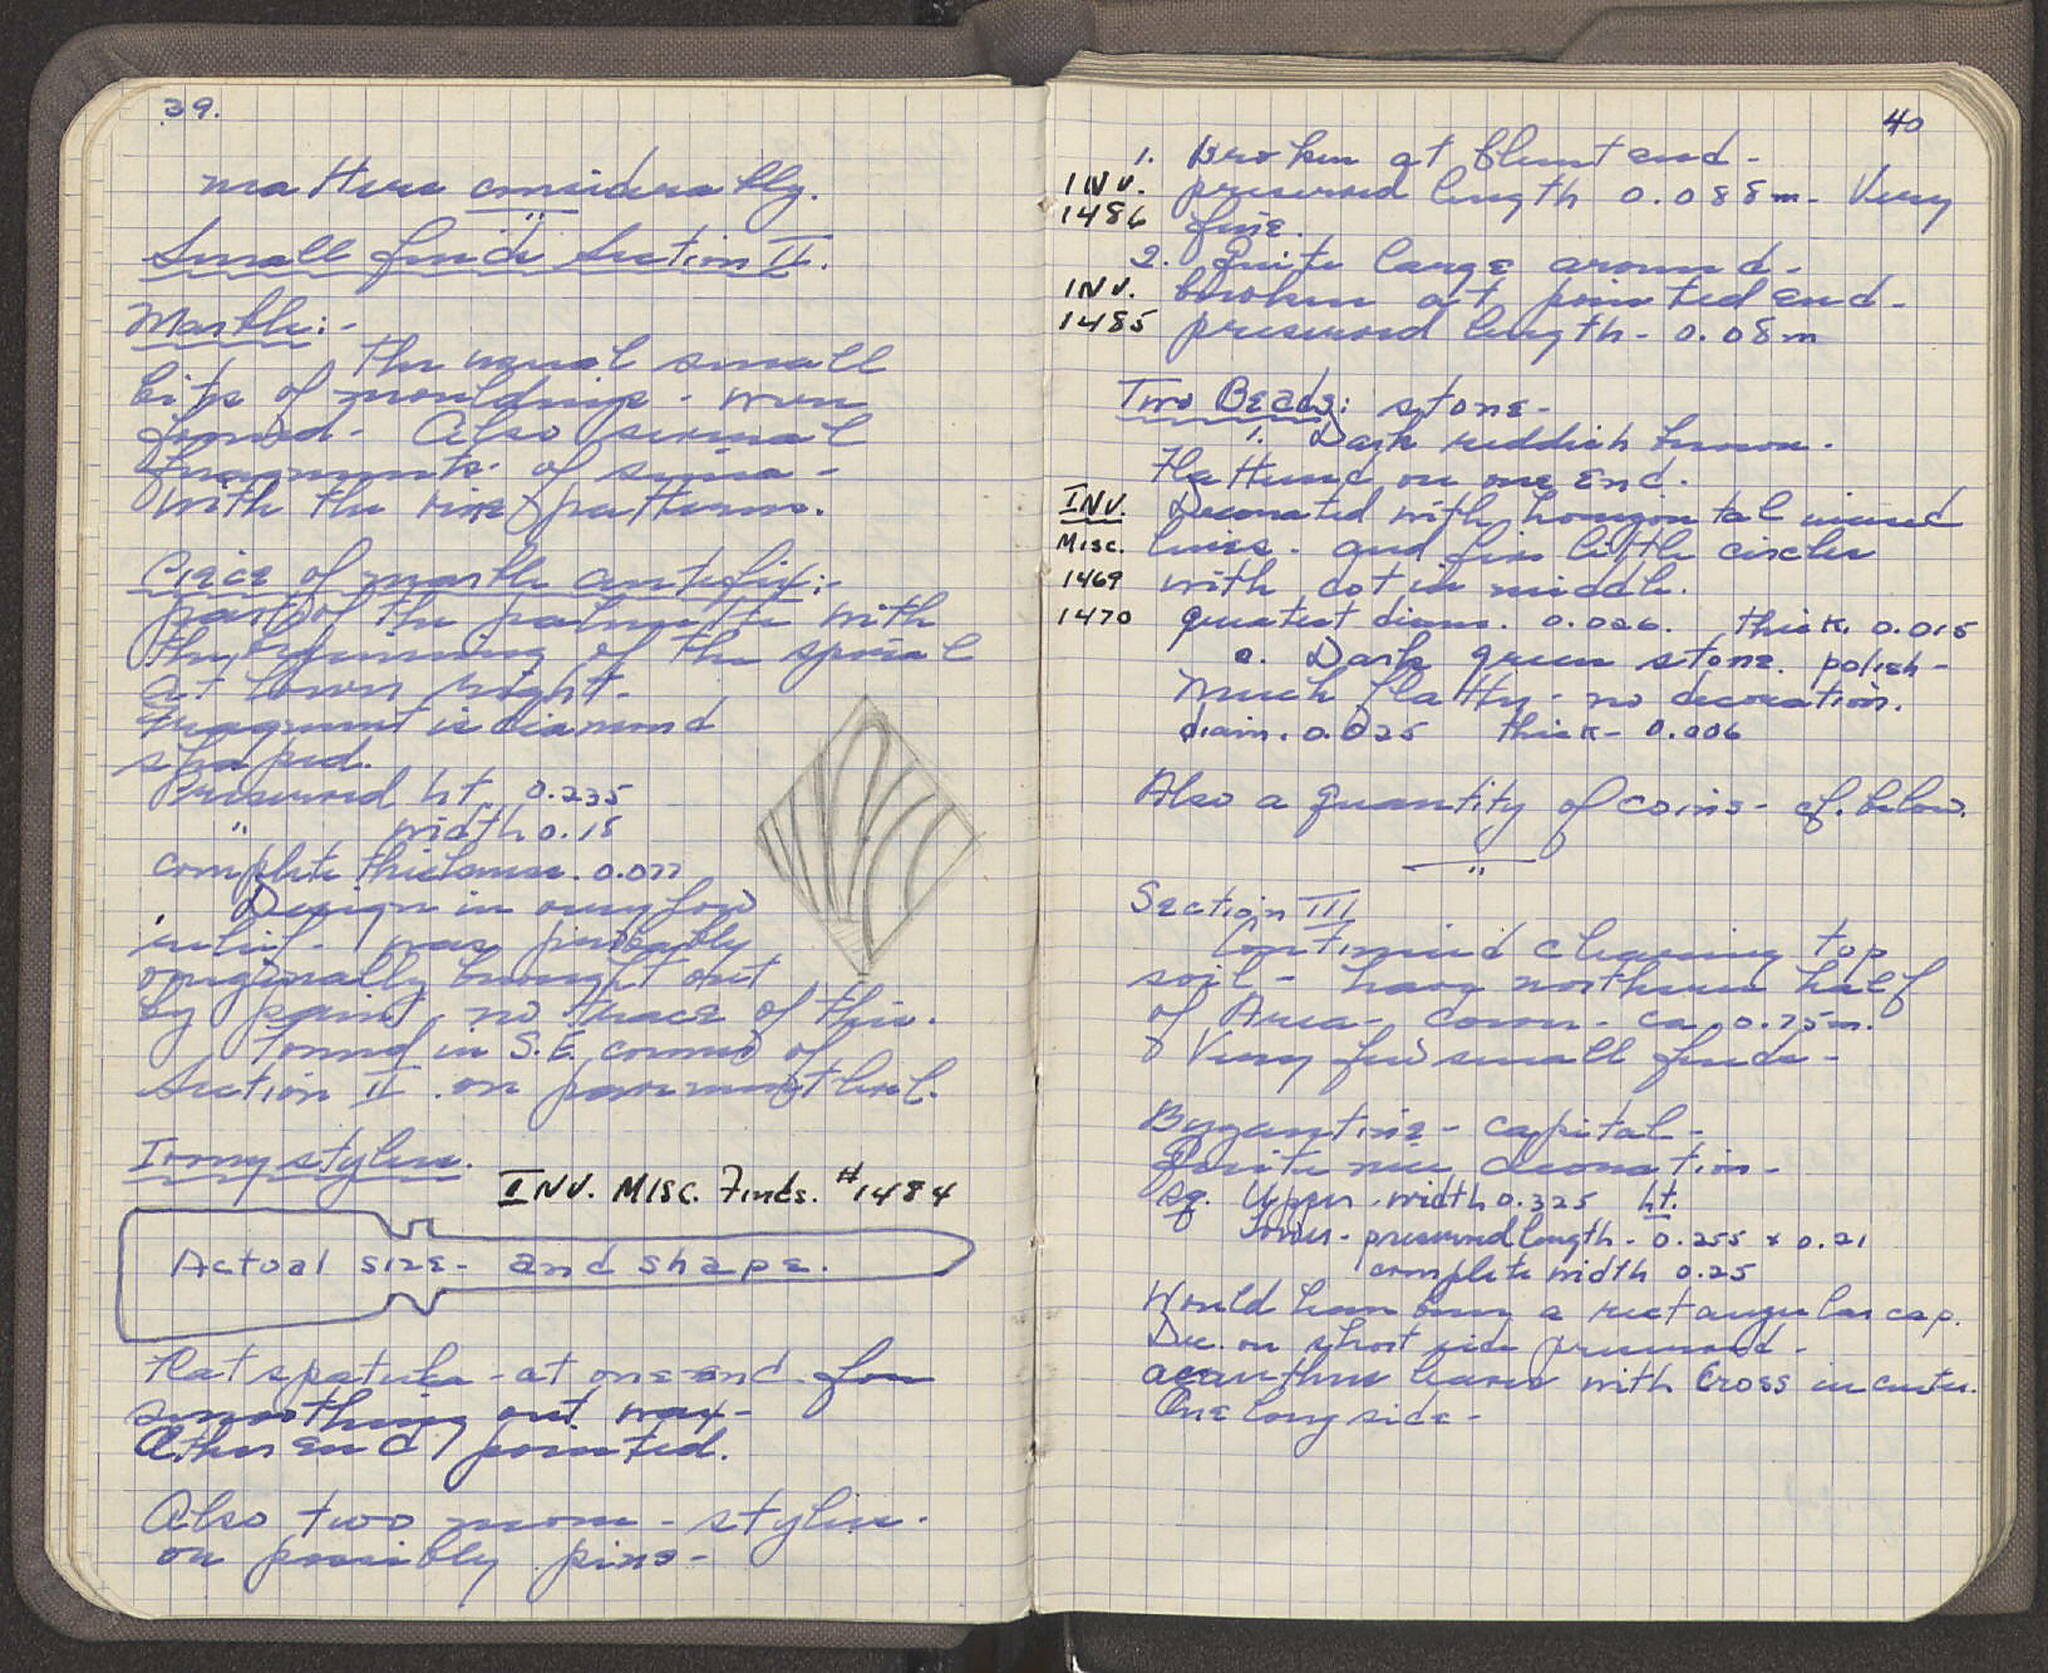 39.
matters considerably.
Small finds Section II.
Marble:-
The usual small
bits of mouldings - were
found - Also several
fragments of sima -
with the rinceau patterns.
Piece of marble antefix:-
part of the palmette with
the beginning of the spiral
at lower right.
Fragment is diamond
shaped.
Preserved ht. 0.235
" width 0.18
complete thickness. 0.077
Design in very low
relief - was probably
originally brought out
by paint, no trace of this.
Found in S.E. corner of
Section II on pavement level.
Ivory stylus.
INV. MISC. Finds. #1484
Actual size - and shape.
Flat spatula - at one end for
smoothing out wax -
Other end pointed.
Also two more - stylus.
or possibly pins -
40
1. Broken at blunt end -
INV. preserved length 0.088m - Very
1486 fine.
2. Quite large around -
INV. broken at pointed end -
1485 preserved length - 0.08m
Two Beads: stone -
1. Dark reddish brown.
Flattened on one end.
INV. Decorated with horizontal incised
Misc. lines - and five little circles
1469 with dot in middle.
1470 greatest diam. 0.026. thick. 0.015
2. Dark green stone. polish -
Much flatter - no decoration.
diam. 0.025 thick - 0.006
Also a quantity of coins - cf. below.
Section III
Continued clearing top
soil - have northern half
of Area - down - ca 0.75m.
Very few small finds -
Byzantine - capital -
Quite nice decoration -
sq. Upper width 0.325 ht.
Lower - preserved length - 0.255 x 0.21
complete width 0.25
Would have been a rectangular cap.
Dec. on short side preserved -
acanthus leaves with Cross in center.
One long side -